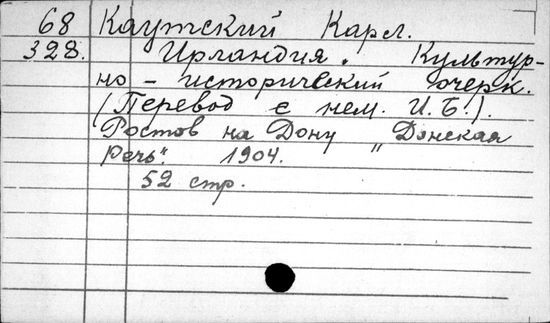 68 Каутский Карл.
328. Ирландия. Культур-
но-исторический очерк.
(Перевод с нем. И. Б.).
Ростов на Дону „Донская
Речь“. 1904.
52 стр.